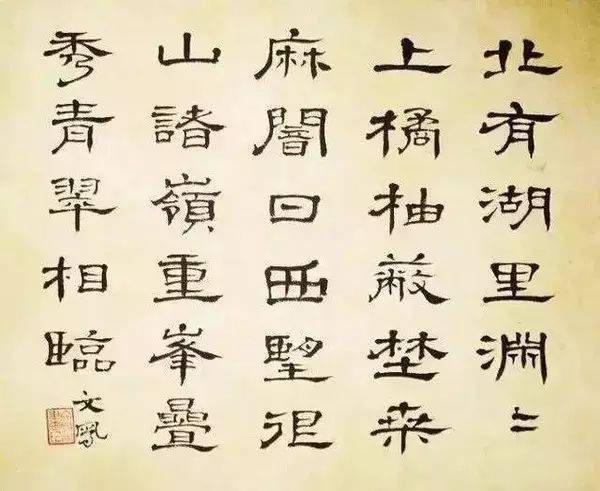 北有湖里淵〻
上橘柚蔽埜桒
麻闇日西望佷
山諸嶺重峯疊
秀青翠相臨
文鳳